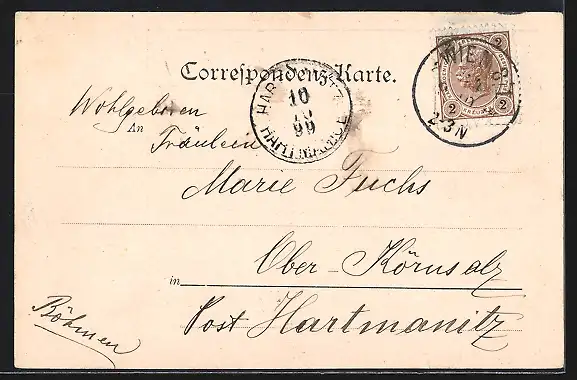 Correspondenz-Karte.
Wohlgeboren
An
Fräulein
Marie Fuchs
Ober-Körnsalz
in
Post Hartmanitz
Böhmen
10
99
WIEN
2-3N
2
2
2